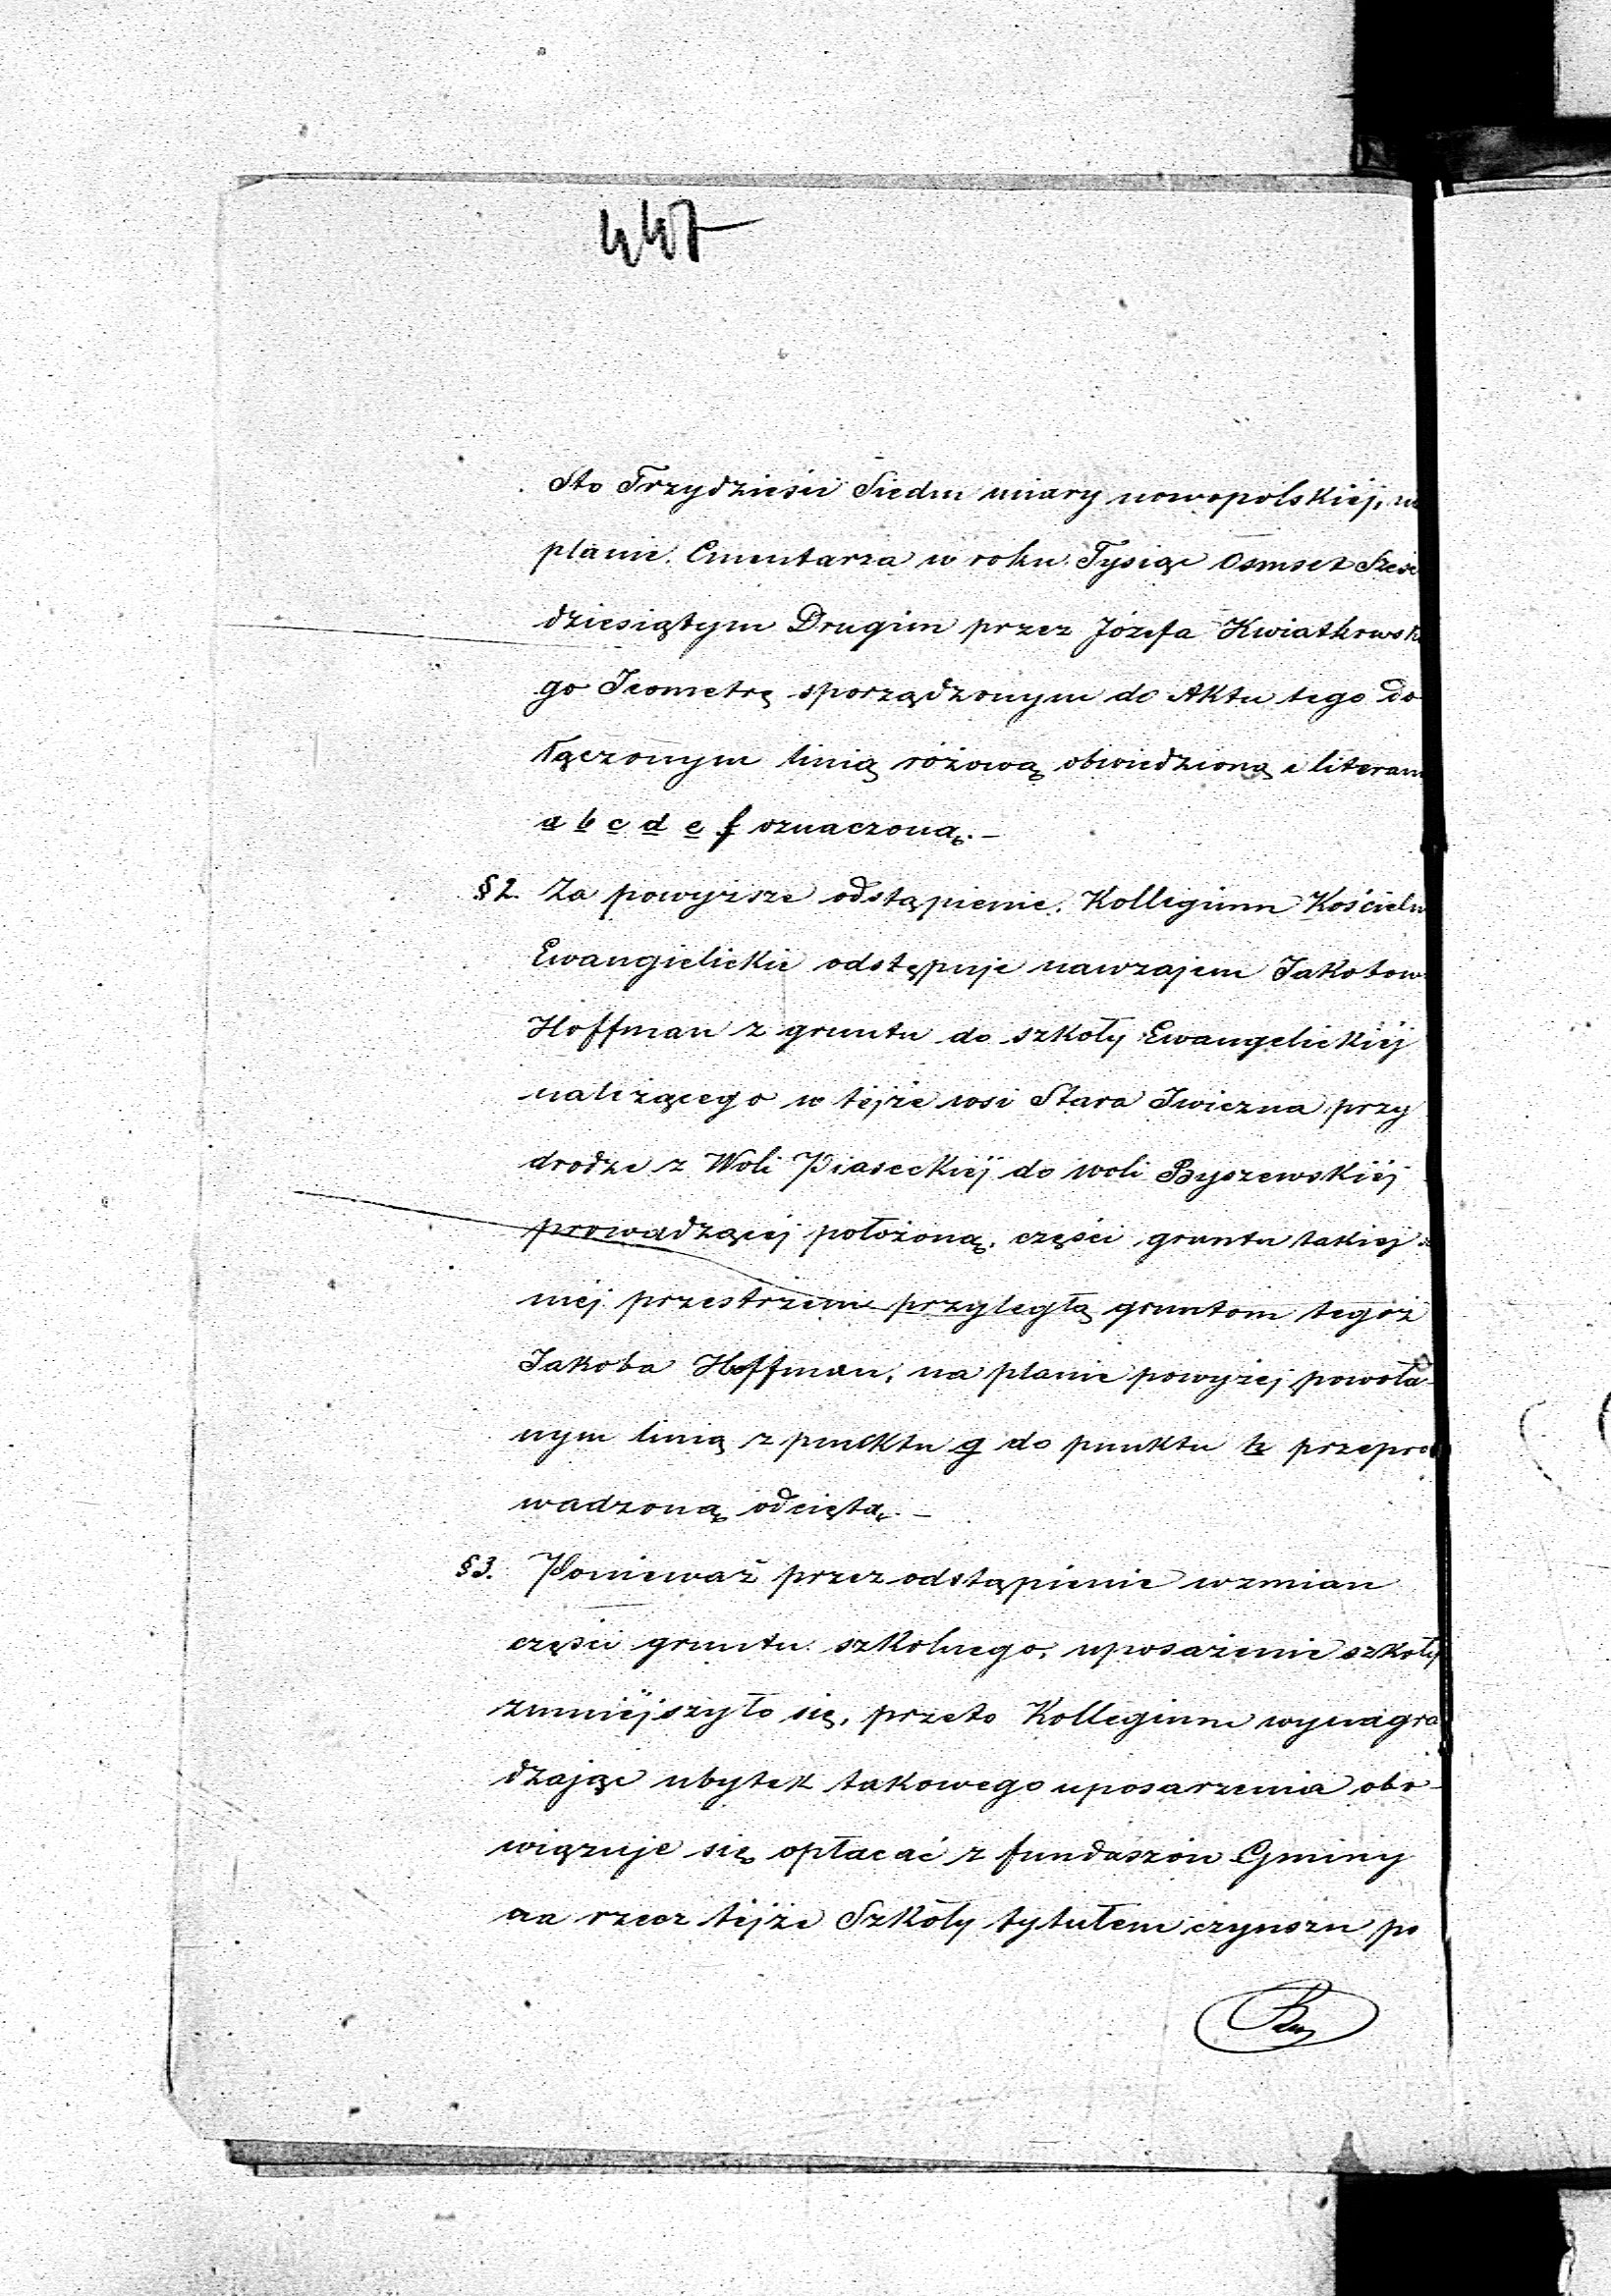 447
Sto Trzydzieści Siedm miary nowopolskiéj, n
planie Cmentarza w roku Tysiąc Osmset Sześć
dziesiątym Drugim przez Józefa Kwiatkowsk
go Jeometrę sporządzonym do Aktu tego do
łączonym linią różową obwiedzioną a literam
a b c d e f oznaczoną.—
§ 2. Za powyższe odstąpienie, Kollegium Kościeln
Ewangielickie odstępuje nawzajem Jakobow
Hoffman z gruntu do szkoły Ewangelickiéj
należącego w téjże wsi Stara Iwiczna przy
drodze z Woli Piaseckiéj do woli Byszewskiéj
prowadzącéj położoną, części gruntu takiej
mej przestrzeni przyległą gruntom tegoż
Jakoba Hoffman, na planie powyżej powoła-
nym linią z punktu g do punktu h przepro
wadzoną odciętą.—
§ 3. Ponieważ przez odstąpienie wzmian
części gruntu szkolnego, uposażenie szkoły
zmniéjszyło się, przeto Kollegium wynagra
dzając ubytek takowego uposarzenia obo-
wiązuje się opłacać z funduszów Gminy
na rzecz téjże Szkoły tytułem czynszu po